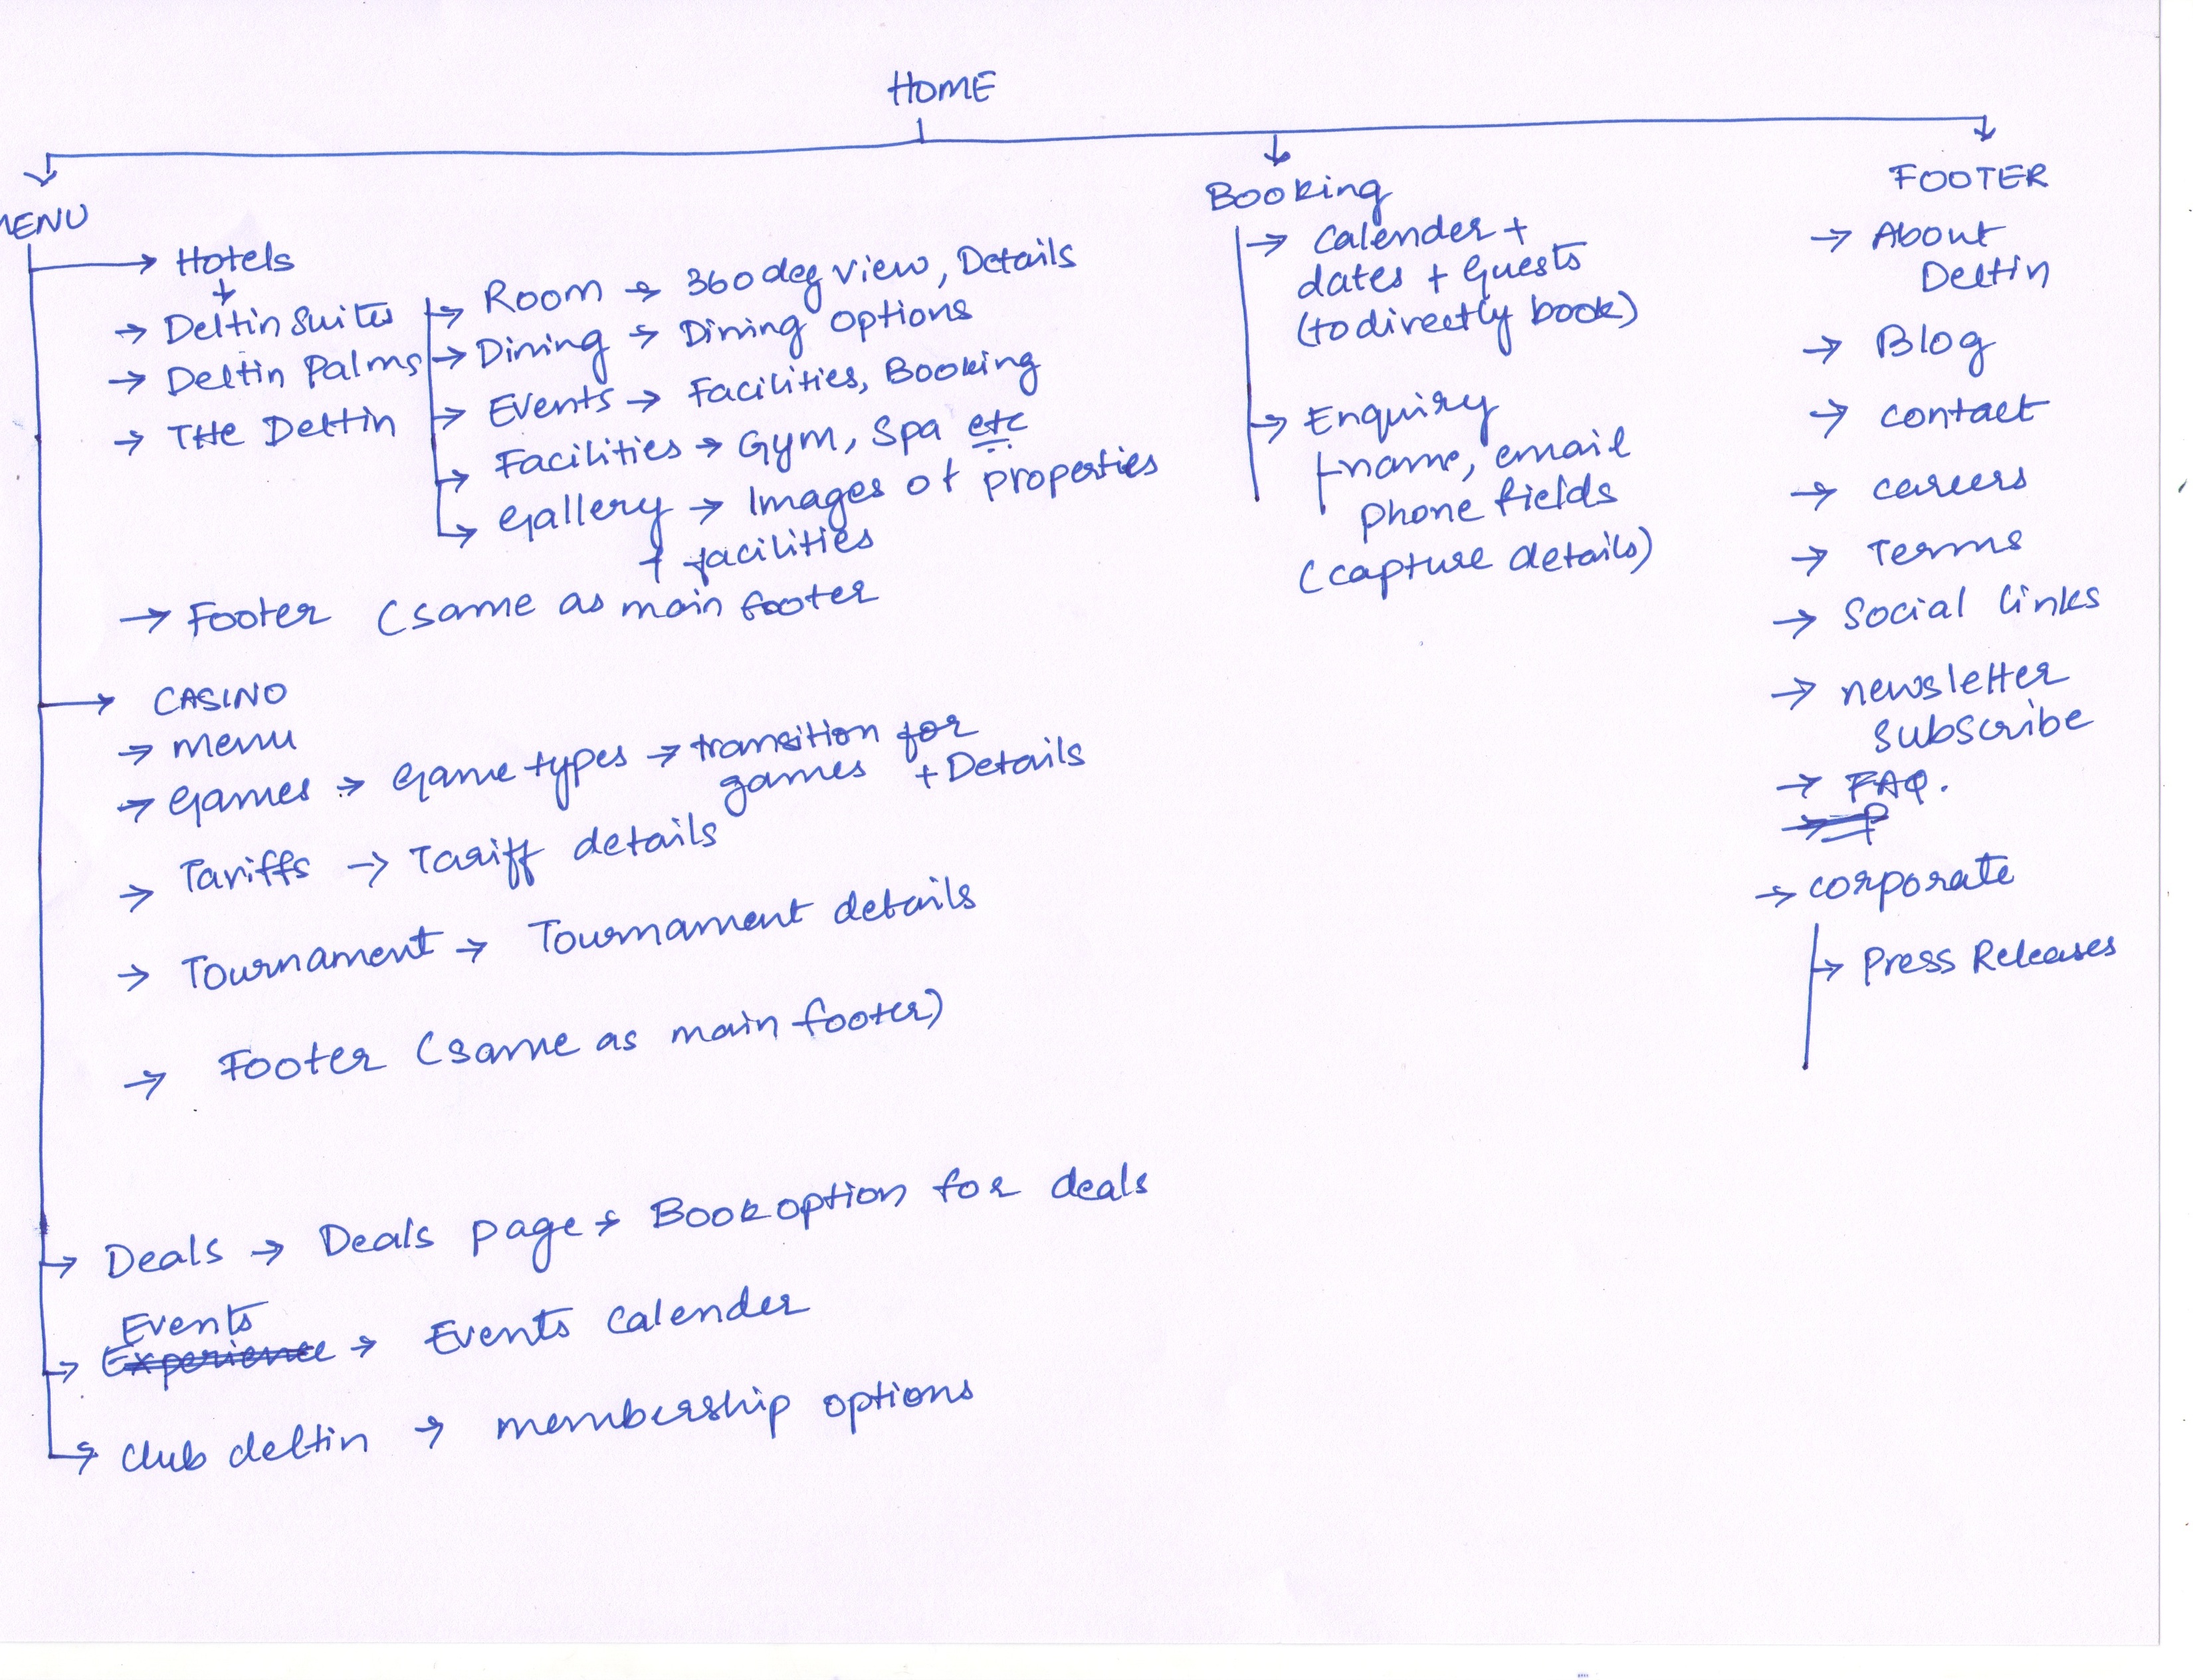 HOME
MENU
→ Hotels
→ Deltin Suites
→ Deltin Palms
→ THe Deltin
→ Room → 360 deg view, Details
→ Dining → Dining options
→ Events → Facilities, Booking
→ Facilities → Gym, Spa etc
→ Gallery → Images of properties
+ facilities
→ Footer (same as main footer
→ CASINO
→ menu
→ Games → Game types → transition for
games + Details
→ Tariffs → Tariff details
→ Tournament → Tournament details
→ Footer (same as main footer)
→ Deals → Deals page → Book option for deals
Events
→ Experience → Events Calender
→ Club deltin → membership options
Booking
→ Calender +
dates + Guests
(to directly book)
→ Enquiry
name, email
phone fields
(capture details)
FOOTER
→ About
Deltin
→ Blog
→ contact
→ careers
→ Terms
→ Social links
→ newsletter
subscribe
→ FAQ.
→ P
→ corporate
→ Press Releases